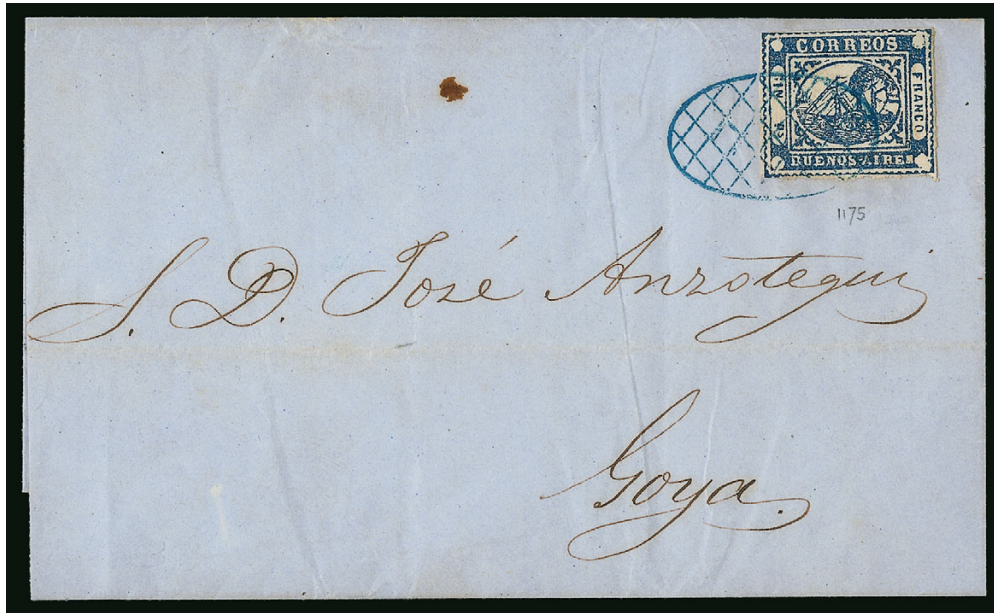 CORREOS
FRANCO
BUENOS-AIRES
1175
S. D. José Anzotegui
Goya.